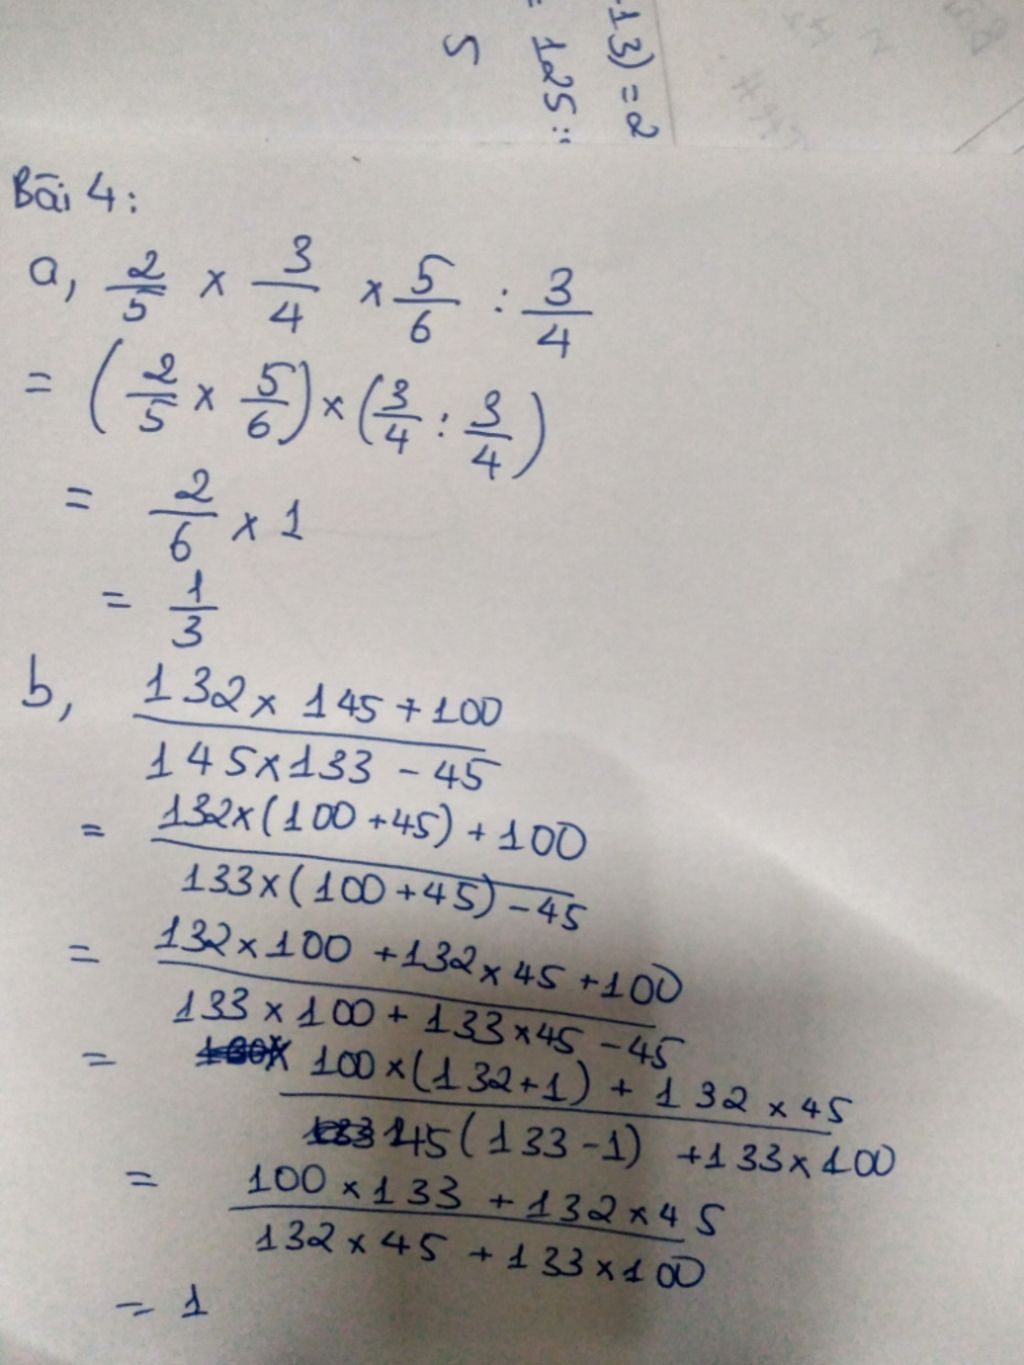 -13) = 2
= 125 :
5
Bài 4:
a, 2/5 × 3/4 × 5/6 : 3/4
= (2/5 × 5/6) × (3/4 : 3/4)
= 2/6 × 1
= 1/3
b, 132 × 145 + 100
145 × 133 - 45
= 132 × (100 + 45) + 100
133 × (100 + 45) - 45
= 132 × 100 + 132 × 45 + 100
133 × 100 + 133 × 45 - 45
= 100 × (132 + 1) + 132 × 45
45 (133 - 1) + 133 × 100
= 100 × 133 + 132 × 45
132 × 45 + 133 × 100
= 1